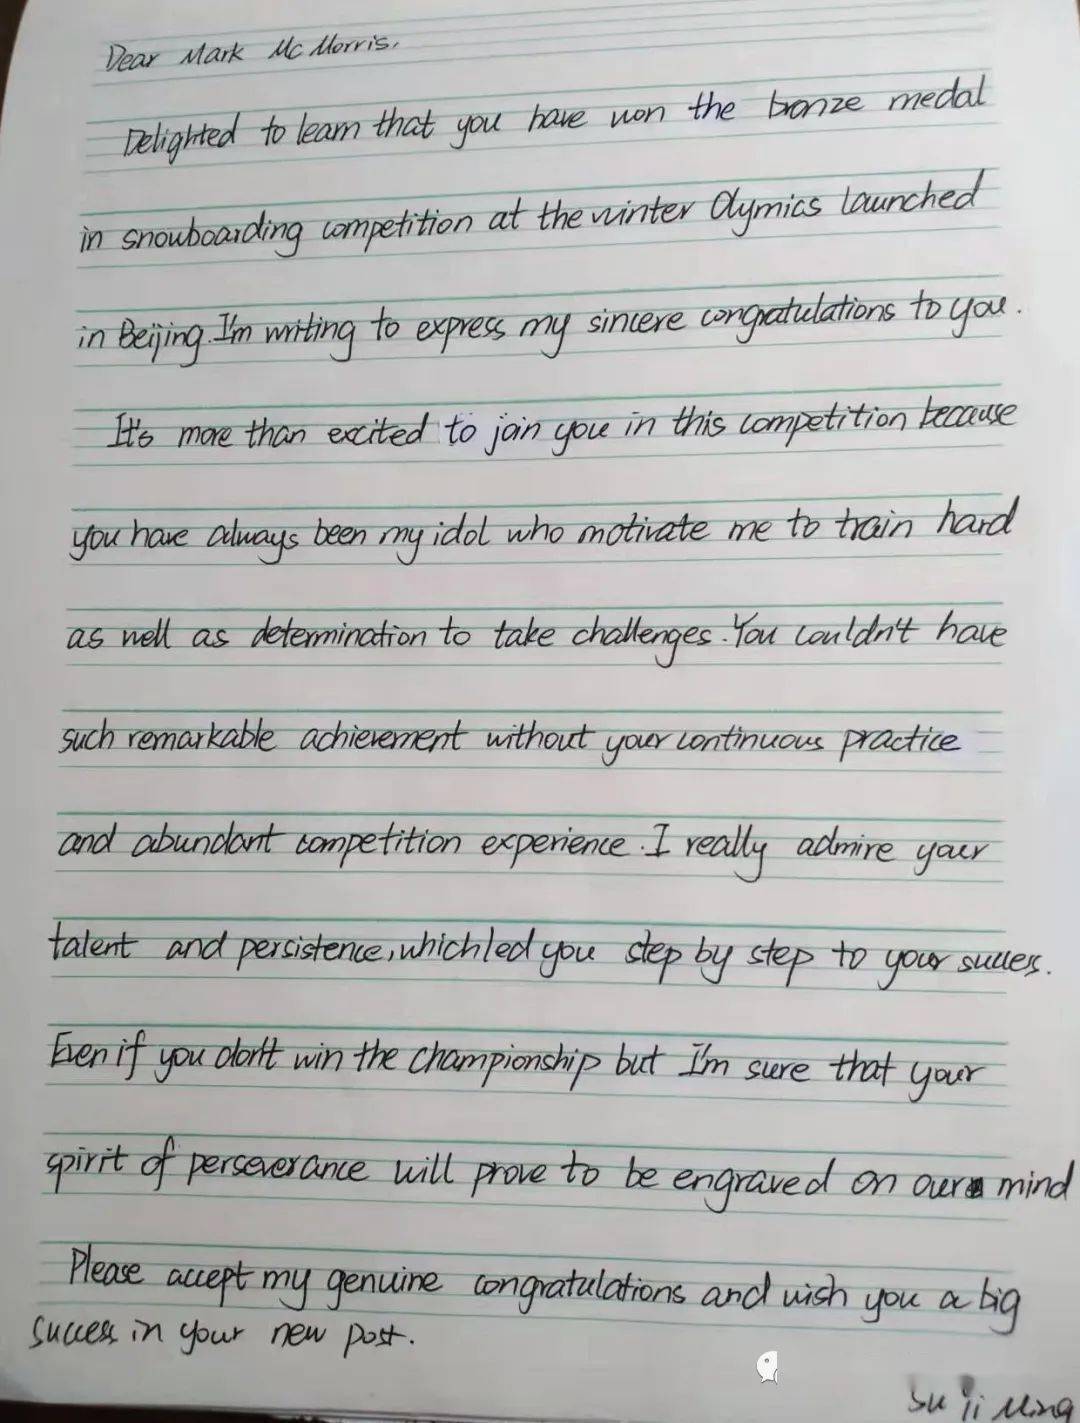 Dear Mark McMorris,
Delighted to learn that you have won the bronze medal
in snowboarding competition at the winter Olymics launched
in Beijing. I'm writing to express my sincere congratulations to you.
It's more than excited to join you in this competition because
you have always been my idol who motivate me to train hard
as well as determination to take challenges. You couldn't have
such remarkable achievement without your continuous practice
and abundant competition experience. I really admire your
talent and persistence, which led you step by step to your success.
Even if you don't win the championship but I'm sure that your
spirit of perseverance will prove to be engraved on our mind
Please accept my genuine congratulations and wish you a big
success in your new post.
Su Ji Ming